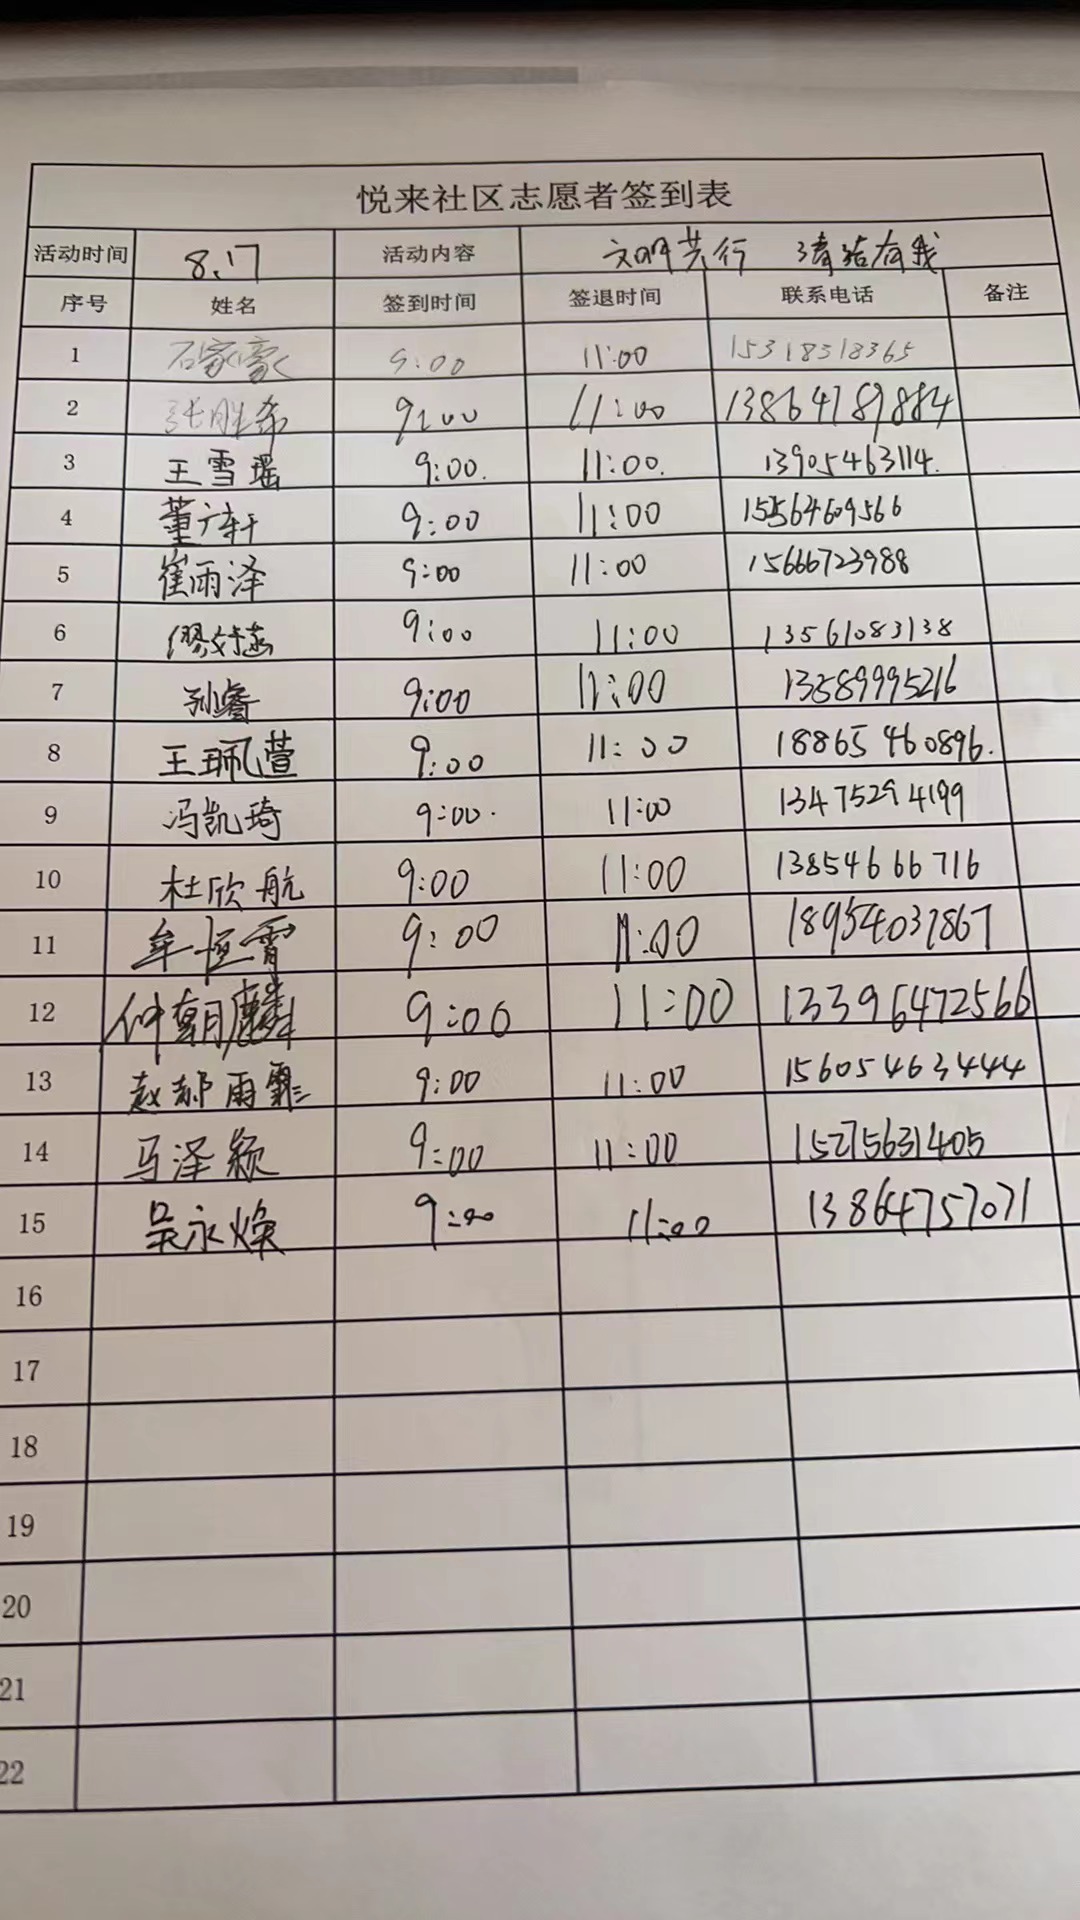 悦来社区志愿者签到表
活动时间 8.17 活动内容 文明共行 清洁有我
序号 姓名 签到时间 签退时间 联系电话 备注
1 石家豪 9:00 11:00 15318318365
2 张胜希 9:00 11:00 13864789884
3 王雪瑶 9:00. 11:00. 13905463114.
4 董广轩 9:00 11:00 15564609566
5 崔雨泽 9:00 11:00 15666723988
6 9:00 11:00 13561083138
7 孙睿 9:00 11:00 13589995216
8 王珮萱 9:00 11:00 18865460896.
9 冯凯琦 9:00. 11:00 13475294199
10 杜欣航 9:00 11:00 13854666716
11 牟恒霄 9:00 11:00 18954037867
12 仲朝麟 9:00 11:00 13396472566
13 赵郝雨霏 9:00 11:00 15605463444
14 马泽颖 9:00 11:00 15275631405
15 吴永焕 9:00 11:00 13864757071
16
17
18
19
20
21
22